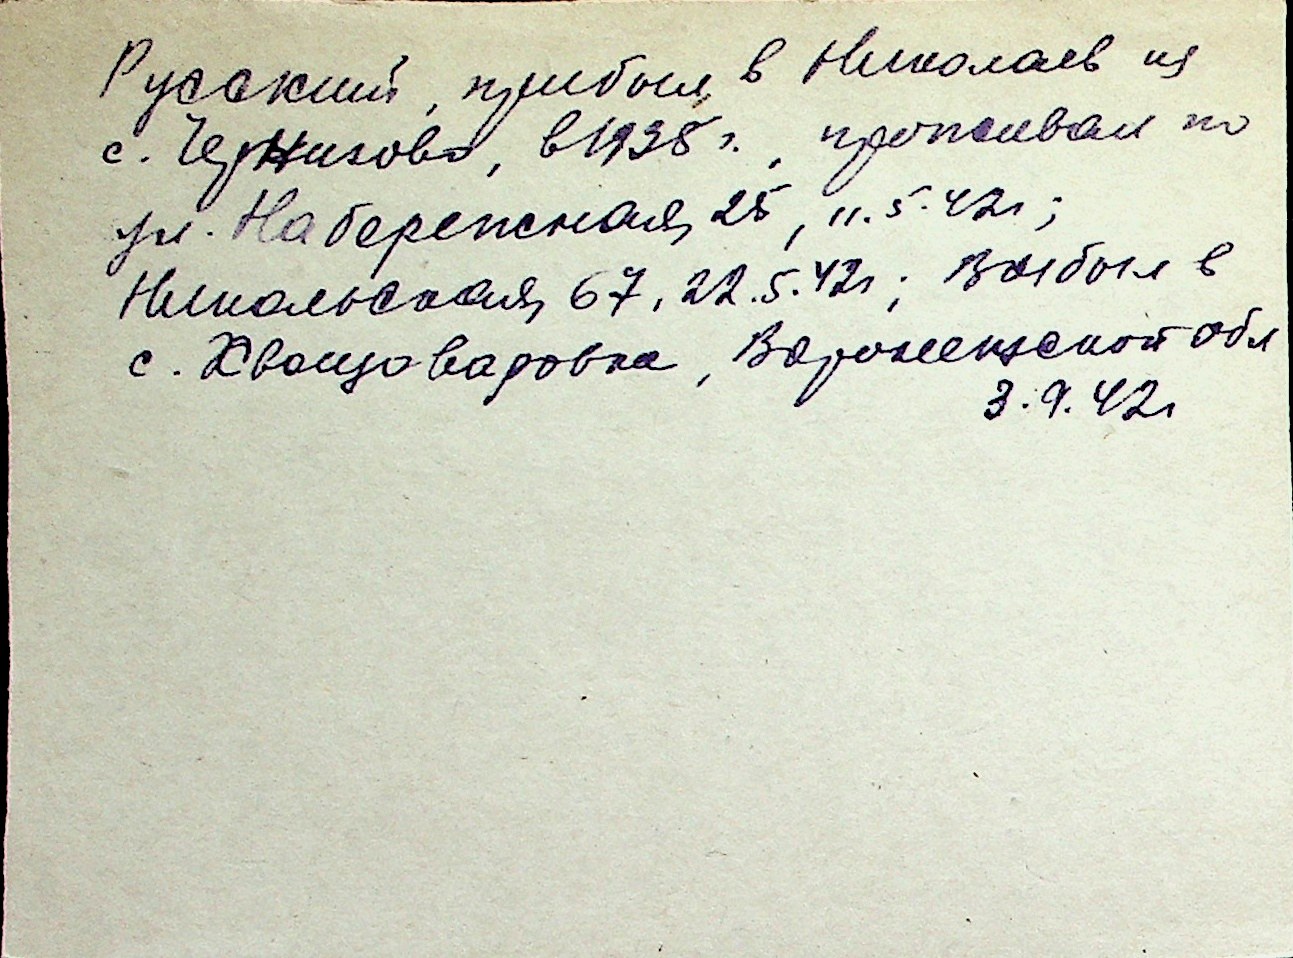 Русский, прибыл в Николаев из
с. Чернигово, в 1938 г., проживал по
ул. Набережная, 25, 11.5.42г;
Никольская, 67, 22.5.42г; Выбыл в
с. Хвощоваровка, Воронежской обл
3.9.42г